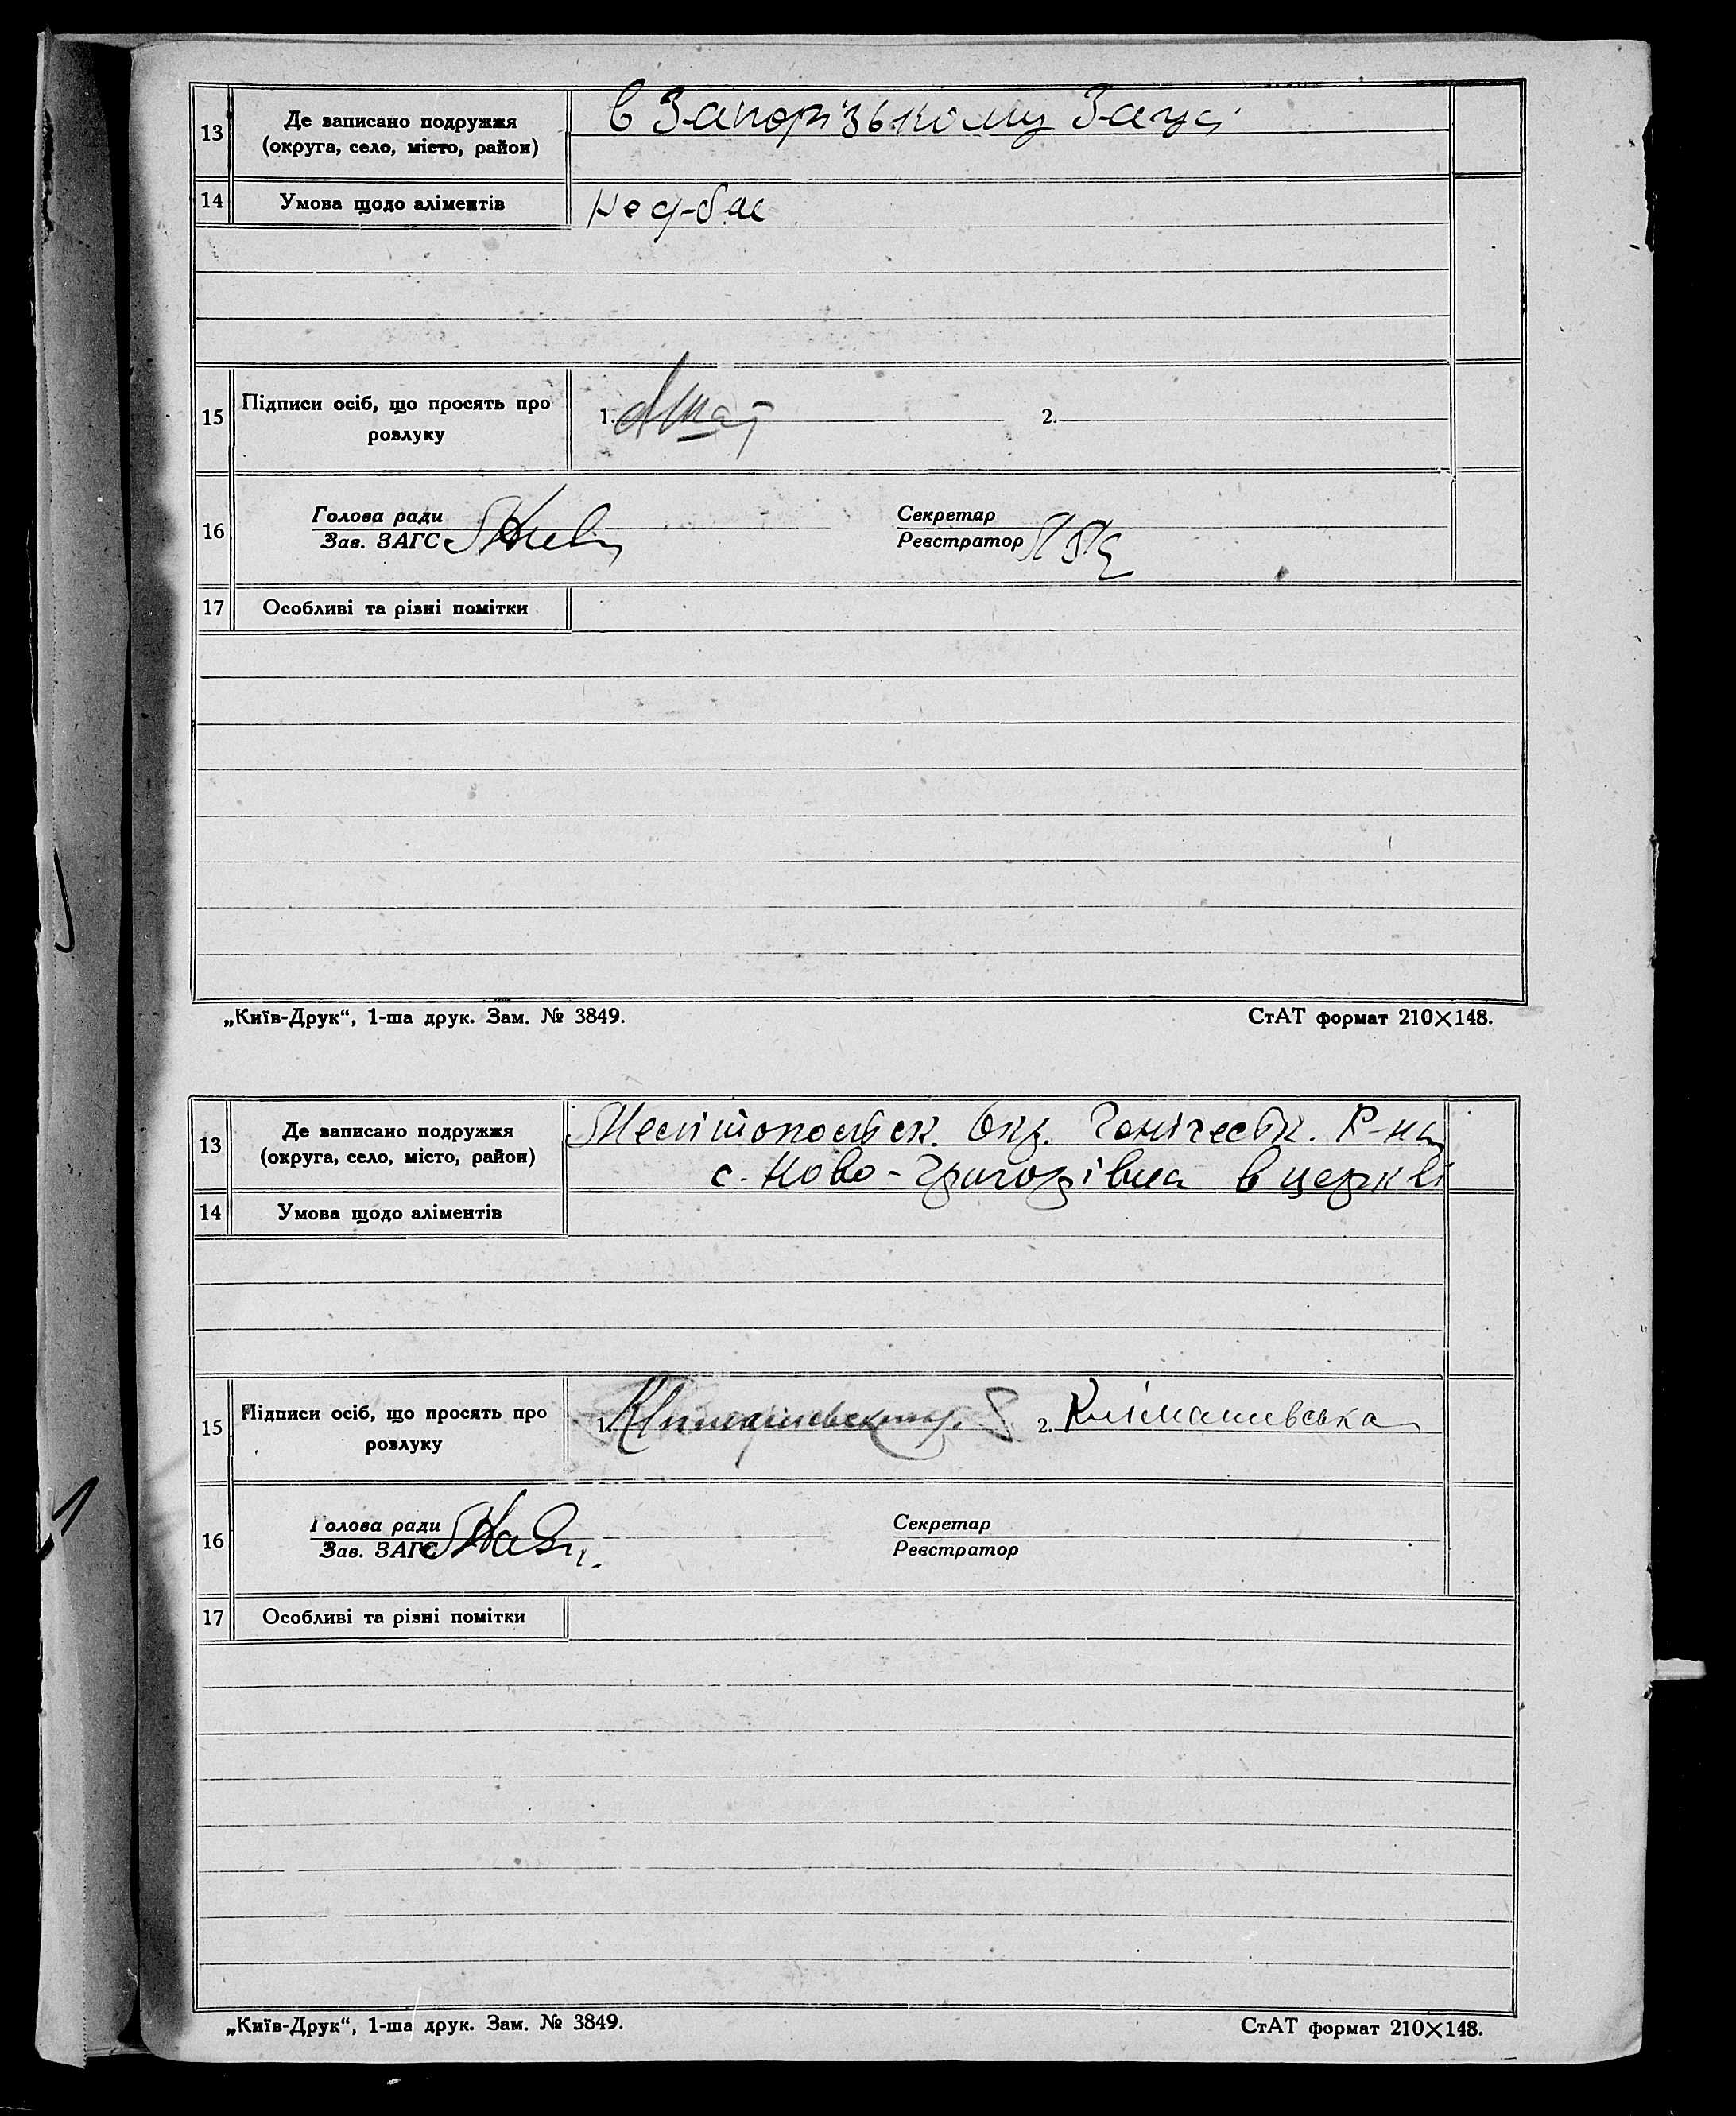 13
Де записано подружжя
(округа, село, місто, район)
в Запорізькому Загсі
14
Умова щодо аліментів
15
Підписи осіб, що просять про
розлуку
1.
2.
16
Голова ради
Зав. ЗАГС
Секретар
Реєстратор
17
Особливі та різні помітки
„Київ-Друк“, 1-ша друк. Зам. № 3849.
СтАТ формат 210×148.
13
Де записано подружжя
(округа, село, місто, район)
Мелітопольськ. Окр. Генічеськ. Р-на
с. Ново-Григорівка в церкві
14
Умова щодо аліментів
15
Підписи осіб, що просять про
розлуку
1.
2. Клімашевська
16
Голова ради
Зав. ЗАГС
Секретар
Реєстратор
17
Особливі та різні помітки
„Київ-Друк“, 1-ша друк. Зам. № 3849.
СтАТ формат 210×148.